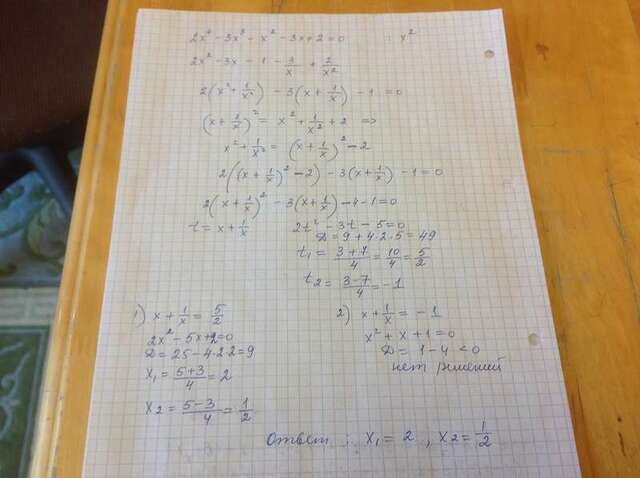 2x⁴ - 3x³ - x² - 3x + 2 = 0 : x²
2x² - 3x - 1 - 3/x + 2/x²
2(x² + 1/x²) - 3(x + 1/x) - 1 = 0
(x + 1/x)² = x² + 1/x² + 2 =>
x² + 1/x² = (x + 1/x)² - 2
2((x + 1/x)² - 2) - 3(x + 1/x) - 1 = 0
2(x + 1/x)² - 3(x + 1/x) - 4 - 1 = 0
t = x + 1/x 2t² - 3t - 5 = 0
D = 9 + 4·2·5 = 49
t₁ = (3+7)/4 = 10/4 = 5/2
t₂ = (3-7)/4 = -1
1) x + 1/x = 5/2
2x² - 5x + 2 = 0
D = 25 - 4·2·2 = 9
x₁ = (5+3)/4 = 2
x₂ = (5-3)/4 = 1/2
2) x + 1/x = -1
x² + x + 1 = 0
D = 1 - 4 < 0
нет решений
Ответ : x₁ = 2 , x₂ = 1/2